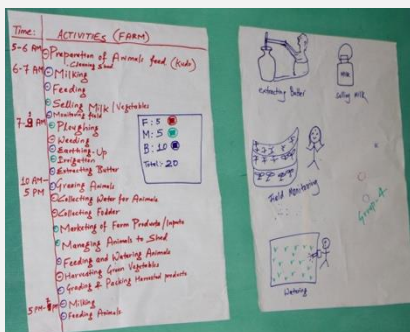 Time: ACTIVITIES (FARM)
5-6 AM Preparation of Animals feed (Kudo)
Cleaning Shed
6-7 AM Milking
Feeding
Selling Milk / Vegetables
Monitoring field
Ploughing
Weeding
Earthing-Up
Irrigation
Extracting Butter
10 AM-
5 PM Grazing Animals
Collecting Water for Animals
Collecting Fodder
Marketing of Farm Products/Inputs
Managing Animals to Shed
Feeding and Watering Animals
Harvesting Green Vegetables
Grading & Packing Harvested products
Milking
Feeding Animals
F: 5
M: 5
B: 10
Total:- 20
extracting Butter
Selling Milk
Field Monitoring
Group-A
Watering